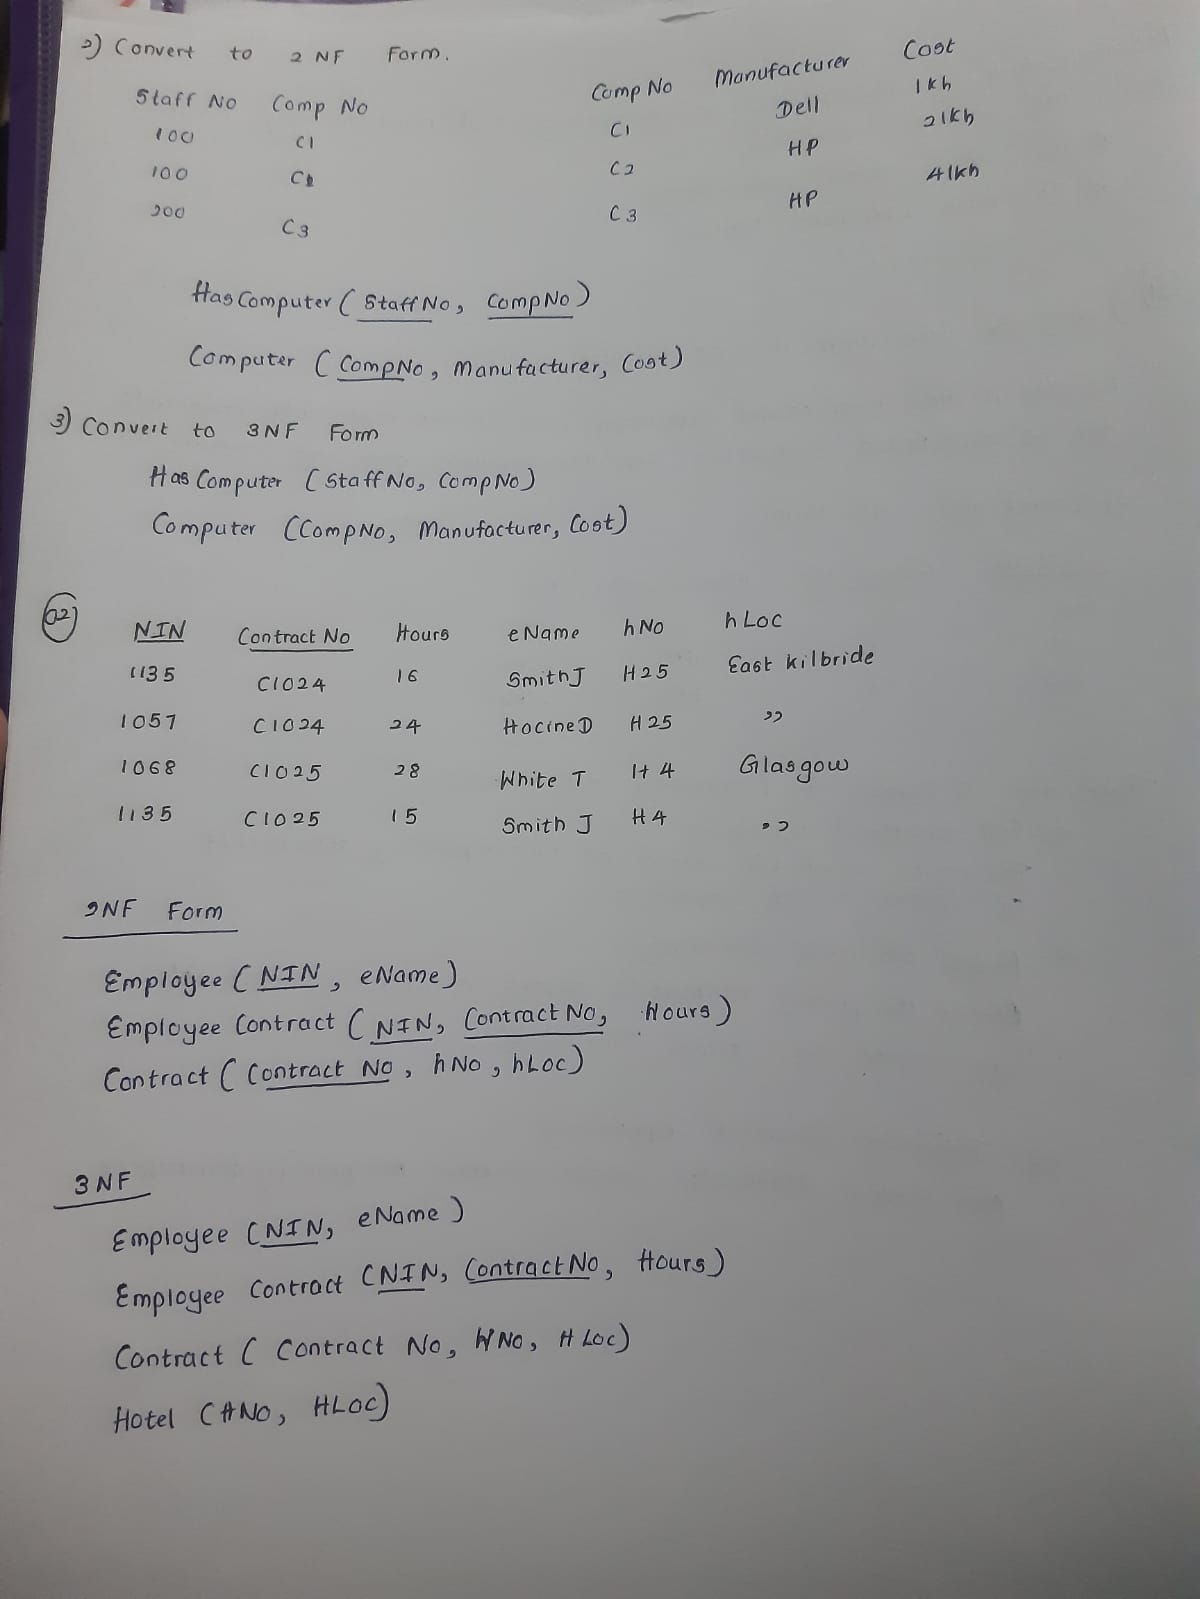 2) Convert to 2 NF Form.
Staff No Comp No
100 C1
100 C2
200 C3
Comp No Manufacturer Cost
C1 Dell 1kh
C2 HP 2lkh
C3 HP 4lkh
Has Computer ( Staff No, Comp No )
Computer ( CompNo, Manufacturer, Cost )
3) Convert to 3NF Form
Has Computer ( Staff No, Comp No )
Computer ( CompNo, Manufacturer, Cost )
Q2)
NIN Contract No Hours eName hNo hLoc
1135 C1024 16 Smith J H25 East kilbride
1057 C1024 24 Hocine D H25 ”
1068 C1025 28 White T H4 Glasgow
1135 C1025 15 Smith J H4 ”
2NF Form
Employee ( NIN, eName )
Employee Contract ( NIN, Contract No, Hours )
Contract ( Contract No, hNo, hLoc )
3NF
Employee ( NIN, eName )
Employee Contract ( NIN, Contract No, Hours )
Contract ( Contract No, HNo, H Loc )
Hotel ( HNo, HLoc )